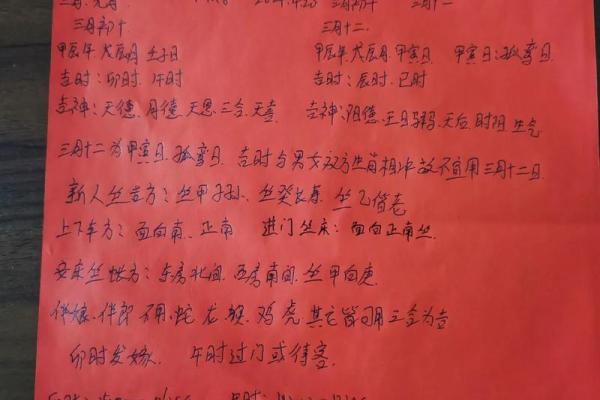 三月初十 三月十二
三月初十 三月十二.
甲辰年.戊辰月 壬子日 甲辰年.戊辰月.甲寅日 甲寅日:孤鸾日
吉时:卯时、午时 吉时:辰时.巳时
吉神:天德.月德.天恩.三合.天喜 吉神:阳德.王日.驿马.天后.时阴.生气
三月十二为甲寅日.孤鸾日.吉时与男女双方生肖相冲故不宜用三月十二日.
新人坐贵方:坐甲子孙、坐癸长寿、坐乙偕老
上下车方:面向南、正南 进门坐床:面向正南坐.
安床坐帐方:东房北间.西房南间.坐甲向庚
伴娘、伴郎不用:蛇龙猴.鸡虎 其它皆可用三合为吉
卯时发嫁. 午时过门或待客.